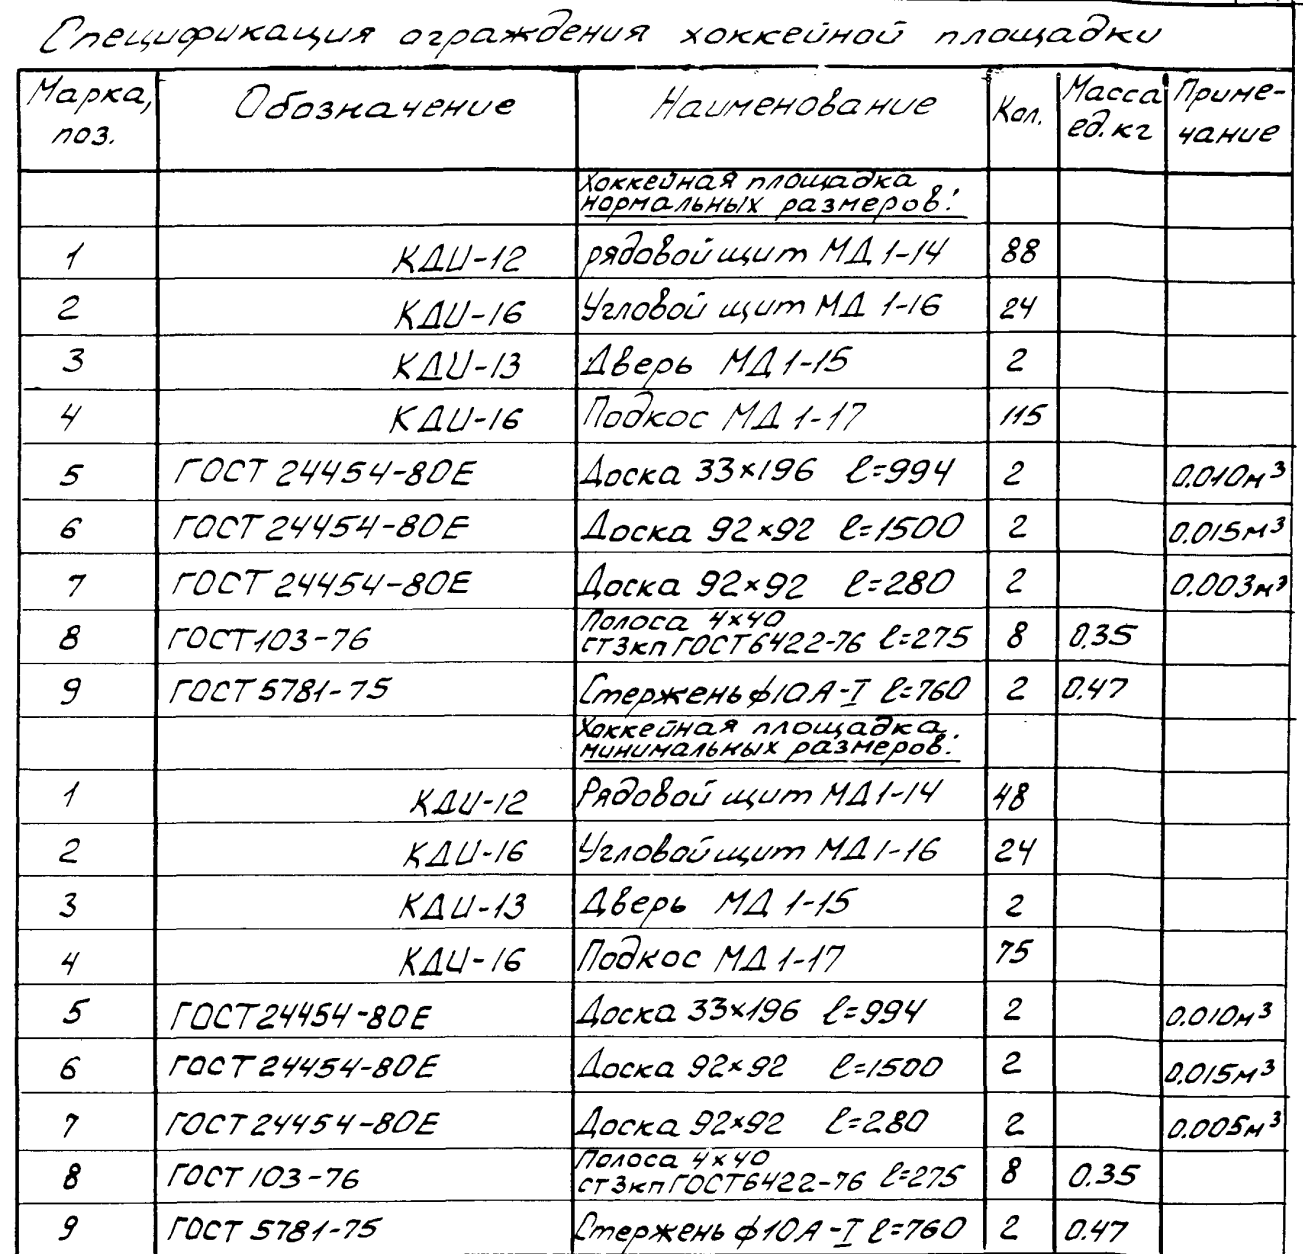 Спецификация ограждения хоккейной площадки
Марка, поз. Обозначение Наименование Кол. Масса ед. кг Примечание
Хоккейная площадка
нормальных размеров:
1 КДИ-12 рядовой щит МД 1-14 88
2 КДИ-16 Угловой щит МД 1-16 24
3 КДИ-13 Дверь МД 1-15 2
4 КДИ-16 Подкос МД 1-17 115
5 ГОСТ 24454-80Е Доска 33×196 ℓ=994 2 0.010м³
6 ГОСТ 24454-80Е Доска 92×92 ℓ=1500 2 0.015м³
7 ГОСТ 24454-80Е Доска 92×92 ℓ=280 2 0.003м³
8 ГОСТ 103-76 Полоса 4×40
ст3кп ГОСТ6422-76 ℓ=275 8 0.35
9 ГОСТ 5781-75 Стержень ф10А-I ℓ=760 2 0.47
Хоккейная площадка
минимальных размеров:
1 КДИ-12 Рядовой щит МД 1-14 48
2 КДИ-16 Угловой щит МД 1-16 24
3 КДИ-13 Дверь МД 1-15 2
4 КДИ-16 Подкос МД 1-17 75
5 ГОСТ 24454-80Е Доска 33×196 ℓ=994 2 0.010м³
6 ГОСТ 24454-80Е Доска 92×92 ℓ=1500 2 0.015м³
7 ГОСТ 24454-80Е Доска 92×92 ℓ=280 2 0.005м³
8 ГОСТ 103-76 Полоса 4×40
ст3кп ГОСТ6422-76 ℓ=275 8 0.35
9 ГОСТ 5781-75 Стержень ф10А-I ℓ=760 2 0.47